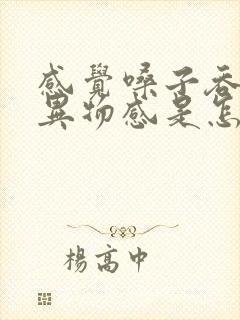 感覺嗓子吞
異物感是怎
楊高中